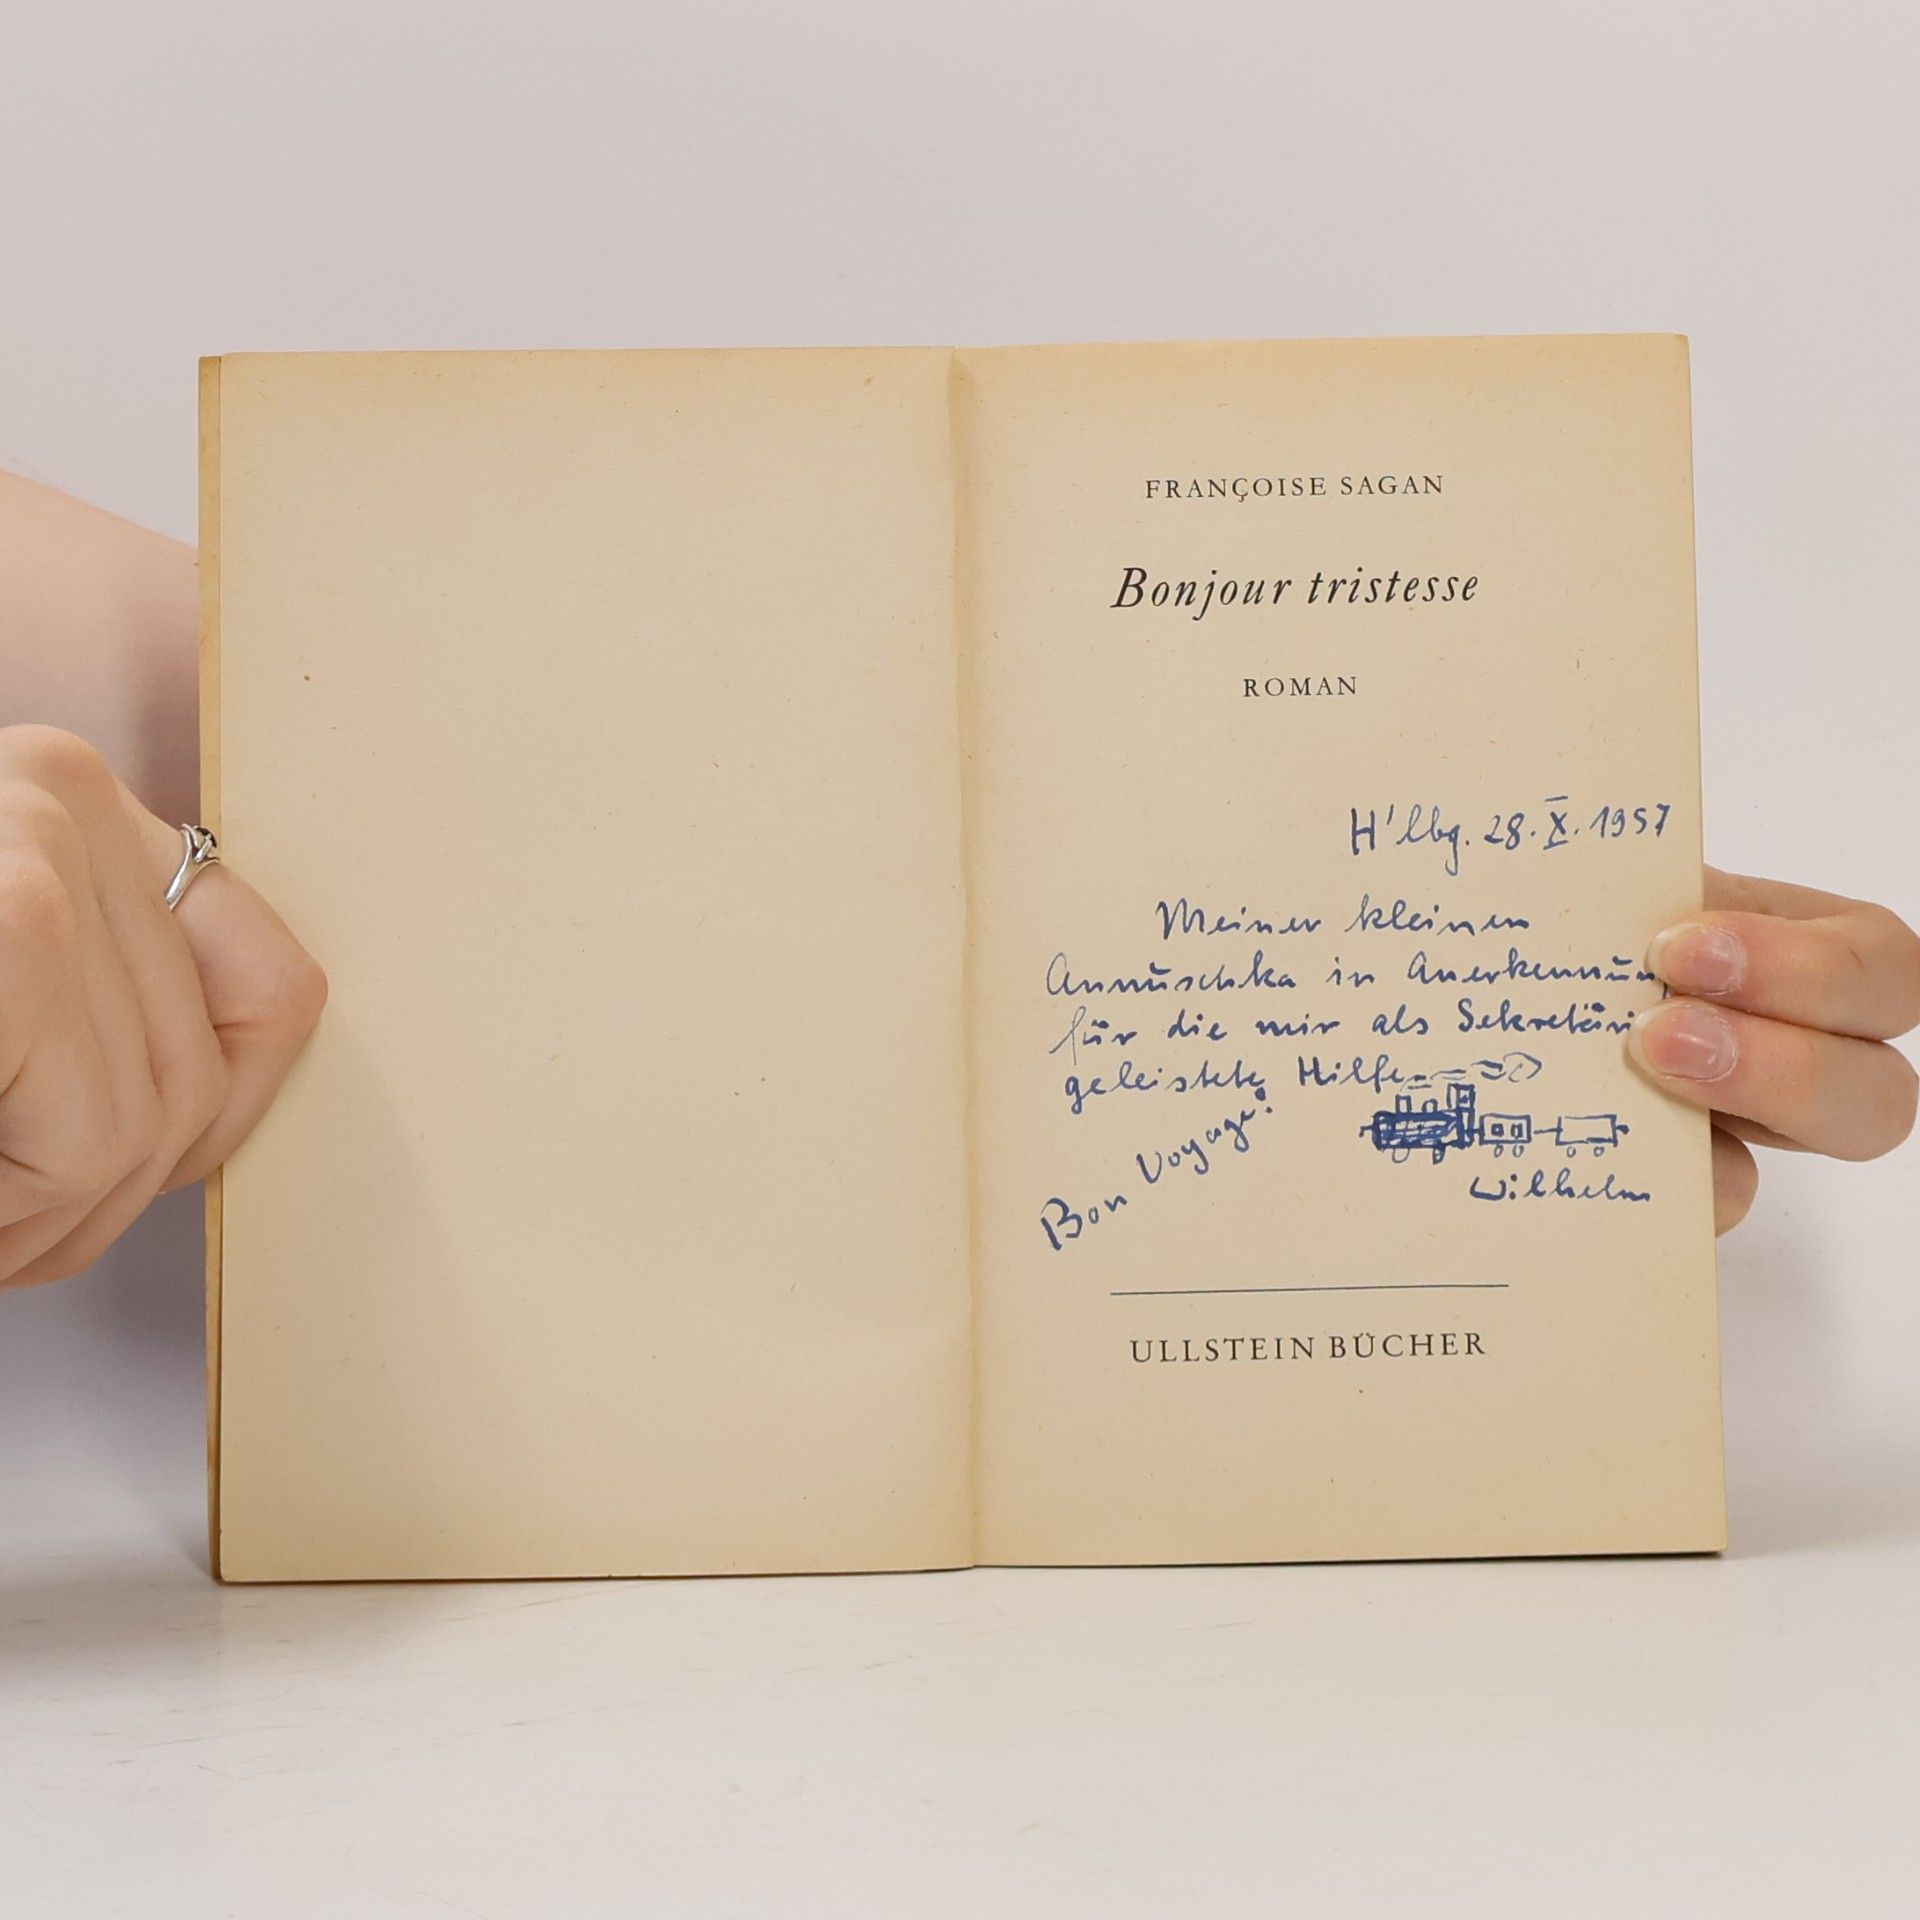 FRANÇOISE SAGAN
Bonjour tristesse
ROMAN
H'lbg. 28. X. 1957
Meiner kleinen
Annuschka in Anerkennun
für die mir als Sekretäri
geleistete Hilfe
Bon Voyage!
Wilhelm
ULLSTEIN BÜCHER